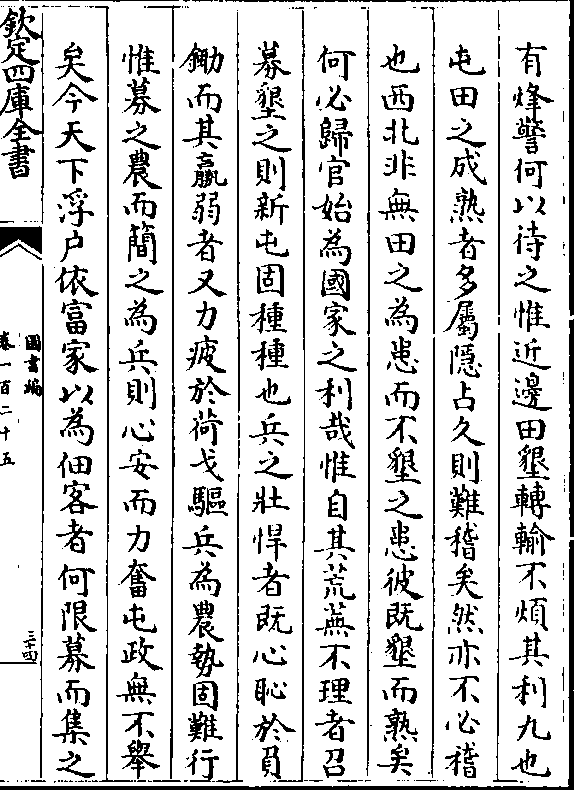 有烽警何以待之惟近邊田墾轉輸不煩其利九也
屯田之成熟者多屬隱占久則難稽矣然亦不必稽
也西北非無田之為患而不墾之患彼既墾而熟矣
何必歸官始為國家之利哉惟自其荒蕪不理者召
募墾之則新屯固種種也兵之壯悍者既心恥於負
鋤而其羸弱者又力疲於荷戈驅兵為農勢固難行
惟募之農而簡之為兵則心安而力奮屯政無不舉
矣今天下浮户依富家以為佃客者何限募而集之
欽定四庫全書
圖書編
卷一百二十五
三十四